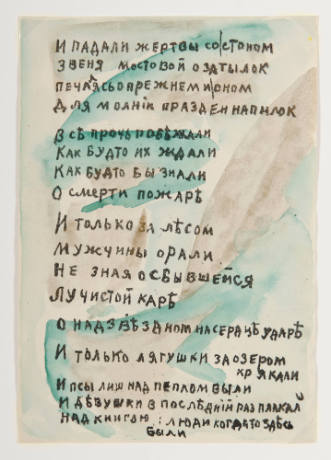 И ПАДАЛИ ЖЕРТВЫ СО СТОНОМ
ЗВЕНЯ МОСТОВОЙ О ЗАТЫЛОК
ПЕЧАЛЯСЬ О ПРЕЖНЕМ И ОНОМ
ДЛЯ МОЛНІЙ ПРАЗДЕН НАПЫЛОК
ВСѢ ПРОЧЬ ПОБѢЖАЛИ
КАК БУДТО ИХ ЖДАЛИ
КАК БУДТО БЫ ЗНАЛИ
О СМЕРТИ ПОЖАРѢ
И ТОЛЬКО ЗА ЛѢСОМ
МУЖЧИНЫ ОРАЛИ
НЕ ЗНАЯ О СБЫВШЕЙСЯ
ЛУЧИСТОЙ КАРѢ
О НАДЗВѢЗДНОМ НА СЕРДЦѢ УДАРѢ
И ТОЛЬКО ЛЯГУШКИ ЗА ОЗЕРОМ
КРЯКАЛИ
И ПСЫ ЛИШ НАД ПЕПЛОМ ВЫЛИ
И ДѢВУШКИ В ПОСЛѢДНІЙ РАЗ ПЛАКАЛИ
НАД КНИГОЮ: ЛЮДИ КОГДАТО ЗДѢСЬ
БЫЛИ